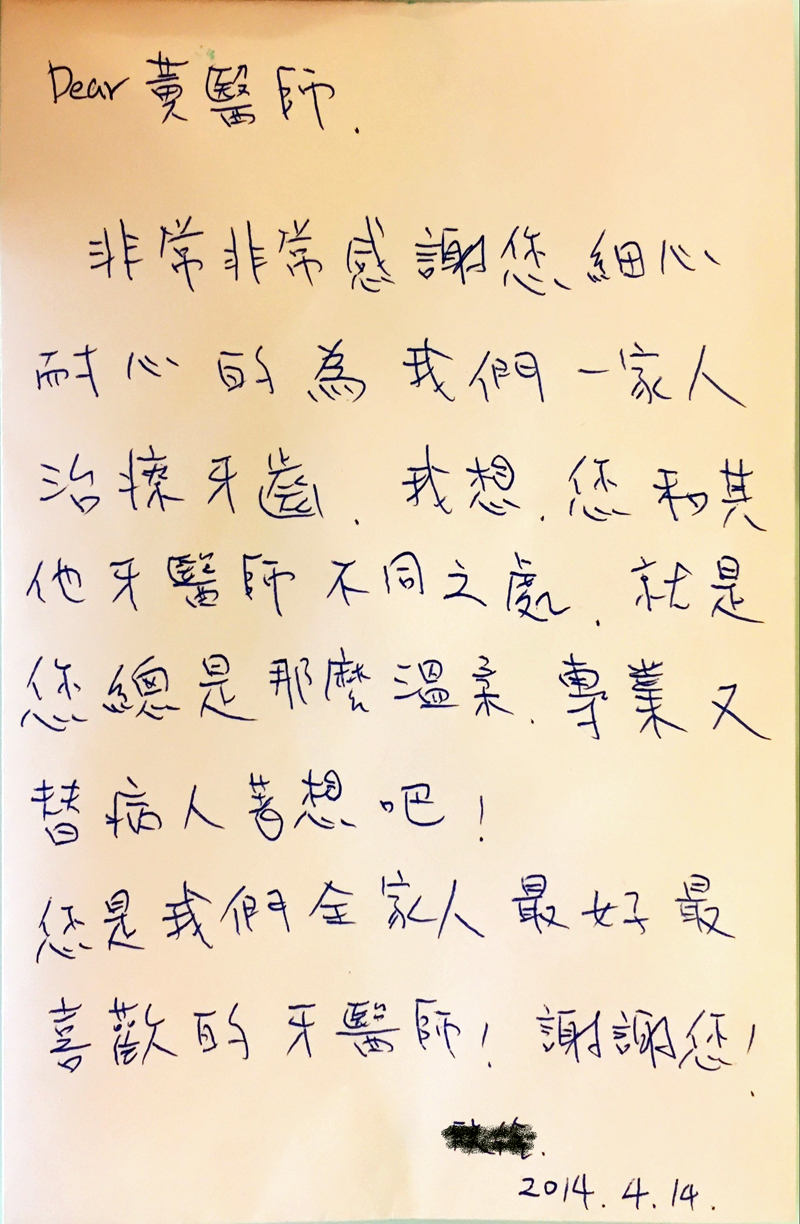 Dear 黃醫師.
非常非常感謝您、細心
耐心的為我們一家人
治療牙齒. 我想. 您和其
他牙醫師不同之處. 就是
您總是那麼溫柔. 專業又
替病人著想吧!
您是我們全家人最好最
喜歡的牙醫師! 謝謝您!
2014. 4. 14.